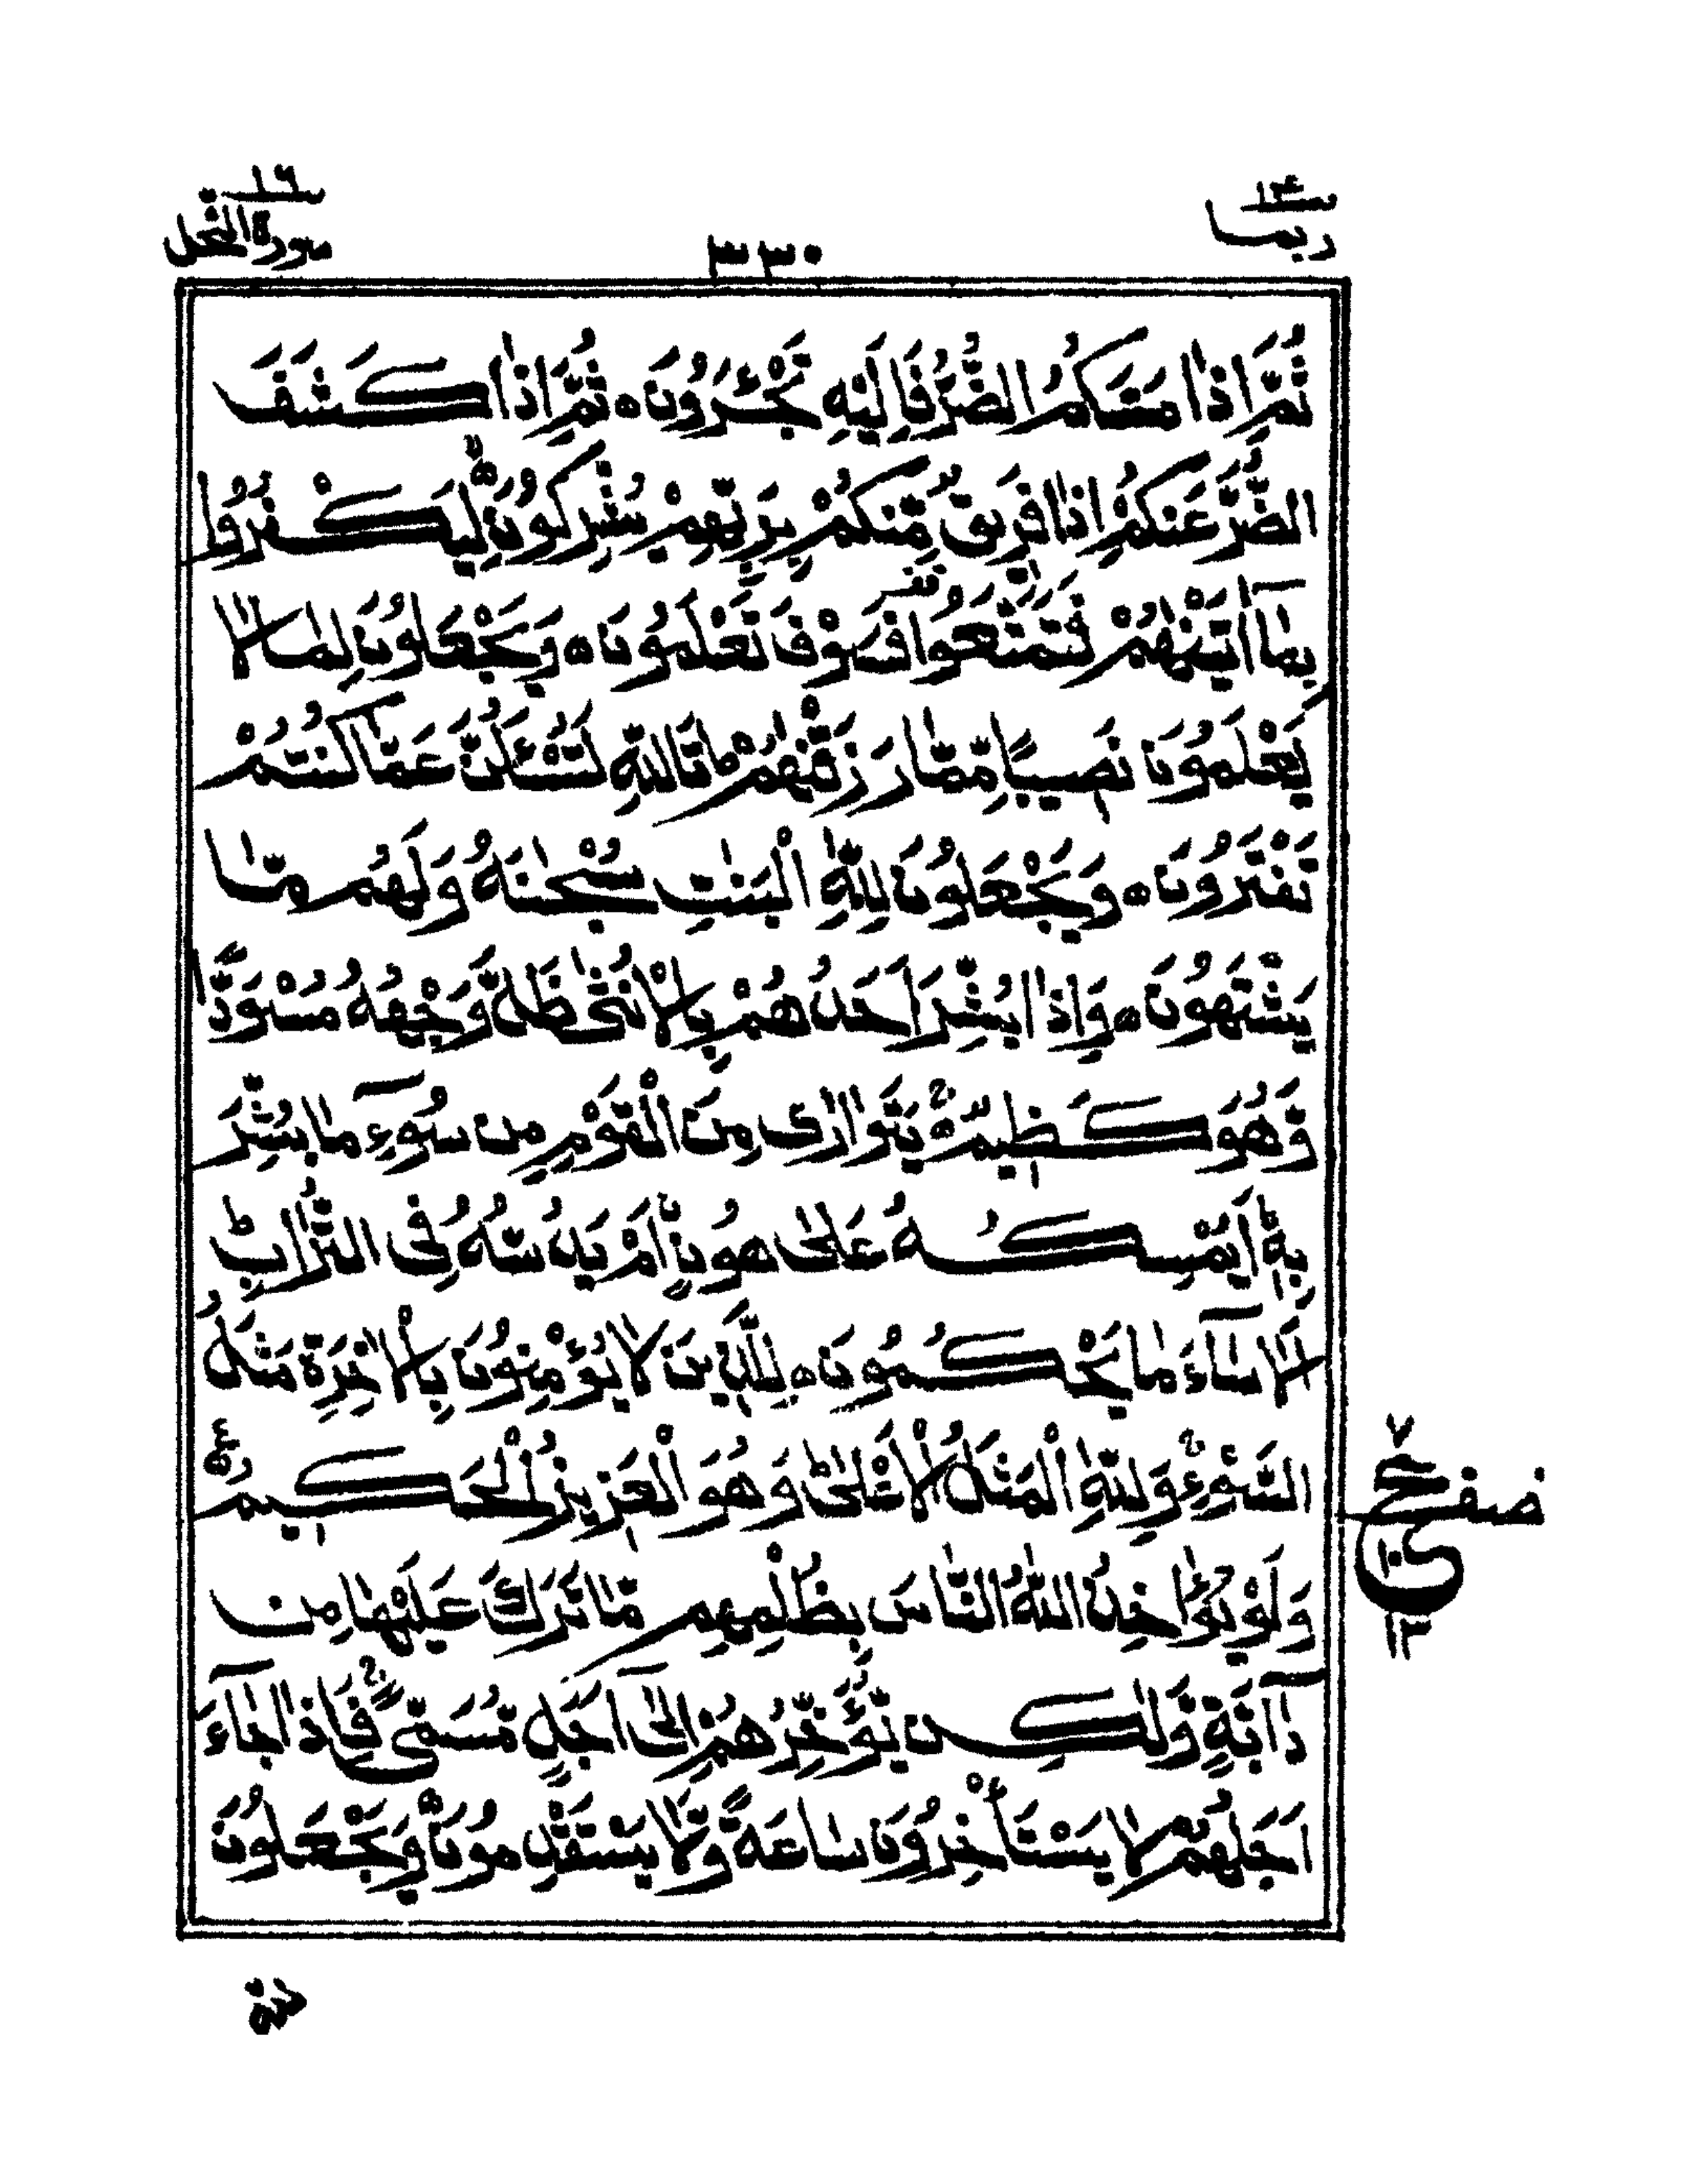 ربما ١٤
٣٣٠
سورة النحل ١٦
ثُمَّ اِذَا مَسَّكُمُ الضُّرُّ فَاِلَيْهِ تَجْئَرُوْنَ ۝ ثُمَّ اِذَا كَشَفَ
الضُّرَّ عَنْكُمْ اِذَا فَرِيْقٌ مِّنْكُمْ بِرَبِّهِمْ يُشْرِكُوْنَ ۝ لِيَكْفُرُوْا
بِمَآ اٰتَيْنٰهُمْ فَتَمَتَّعُوْا فَسَوْفَ تَعْلَمُوْنَ ۝ وَيَجْعَلُوْنَ لِمَا لَا
يَعْلَمُوْنَ نَصِيْبًا مِّمَّا رَزَقْنٰهُمْ ط تَاللّٰهِ لَتُسْئَلُنَّ عَمَّا كُنْتُمْ
تَفْتَرُوْنَ ۝ وَيَجْعَلُوْنَ لِلّٰهِ الْبَنٰتِ سُبْحٰنَهٗ وَلَهُمْ مَّا
يَشْتَهُوْنَ ۝ وَاِذَا بُشِّرَ اَحَدُهُمْ بِالْاُنْثٰى ظَلَّ وَجْهُهٗ مُسْوَدًّا
وَّهُوَ كَظِيْمٌ ۝ يَتَوَارٰى مِنَ الْقَوْمِ مِنْ سُوْٓءِ مَا بُشِّرَ
بِهٖ ط اَيُمْسِكُهٗ عَلٰى هُوْنٍ اَمْ يَدُسُّهٗ فِى التُّرَابِ ط
اَلَا سَآءَ مَا يَحْكُمُوْنَ ۝ لِلَّذِيْنَ لَا يُؤْمِنُوْنَ بِالْاٰخِرَةِ مَثَلُ
السَّوْءِ ج وَلِلّٰهِ الْمَثَلُ الْاَعْلٰى ط وَهُوَ الْعَزِيْزُ الْحَكِيْمُ ۝ ع
وَلَوْ يُؤَاخِذُ اللّٰهُ النَّاسَ بِظُلْمِهِمْ مَّا تَرَكَ عَلَيْهَا مِنْ
دَآبَّةٍ وَّلٰكِنْ يُّؤَخِّرُهُمْ اِلٰٓى اَجَلٍ مُّسَمًّى ج فَاِذَا جَآءَ
اَجَلُهُمْ لَا يَسْتَأْخِرُوْنَ سَاعَةً وَّلَا يَسْتَقْدِمُوْنَ ۝ وَيَجْعَلُوْنَ
٧
ع
١٠
١٣